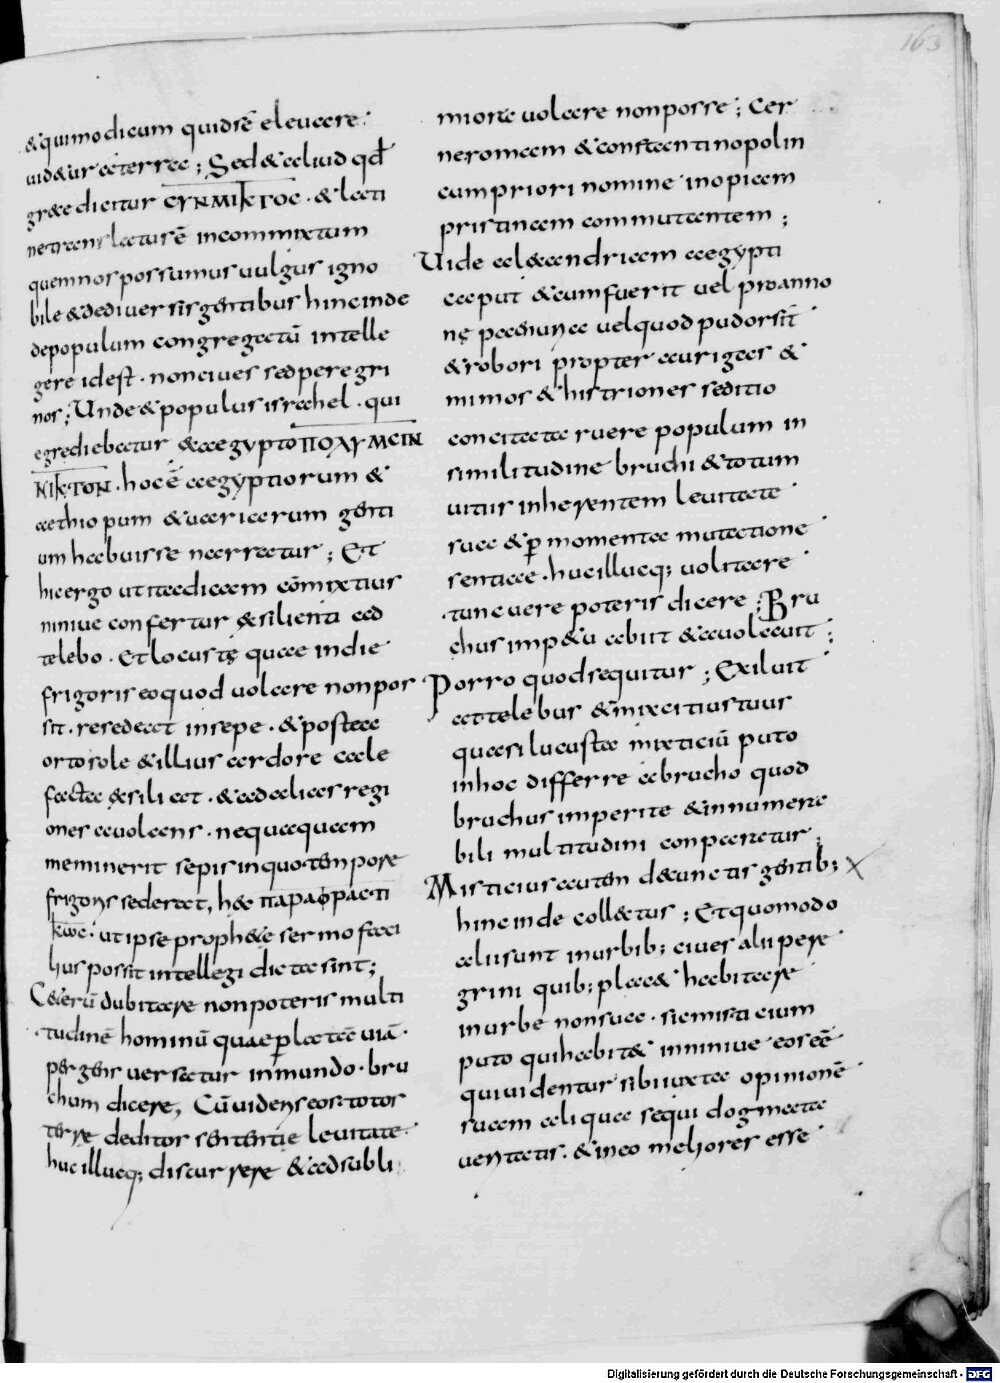 163
& quimodicum quid sē eleuare.
uid&ur a terra; Sed & aliud qđ
græce dicitur CΥΝΜΙΚΤΟC. & lati
ne translatusē incommixtum
quem nos possumus uulgus igno
bile & de diuersis gentibus hincinde
depopulum congregatū intelle
gere idest. non ciues sed peregri
nos; Unde & populus israhel. qui
egrediebatur & aegypto ΠΟΛΥΜCΙΝ
ΝΙΚΤΟΝ. hocē aegyptiorum &
aethiopum & uaricarum genti
um habuisse narratur; Et
hic ergo ut ita dicam cōmixtius
niniue confertur & silienti ad
telebo. Et locustę quae in die
frigoris eo quod uolare non pos
sit. resedeat in sepe. & postea
orto sole & illius ardore cale
facta & siliat. & ad alias regi
ones auolans. nequaquam
meminerit sepis in quo tempore
frigoris sederat, hæc παραφρασ τι
κωσ. ut ipse proph&ae sermo faci
lius possit intellegi dicta sint;
C&erū dubitare non poteris multi
tudinē hominū quae p latā uiā.
pergens uersatur in mundo. bru
chum dicere, Cū uidens eos. totos
terre deditos sententie leuitate.
huc illucq; discurrere & ad subli
miora uolare non posse; Cer
ne romam & constantinopolin
cum priori nomine inopiam
pristinam commutantem;
Uide alexandriam aegypti
caput & cum fuerit uel pro anno
nę paenuria uel quod pudor sit
& robori propter aurigas &
mimos & histriones seditio
concitata ruere populum in
similitudine bruchi & totum
uitiis inherentem leuitate
sua & p momenta mutatione
sentiae. huc illucq; uolitare
tunc uere poteris dicere; Bru
chus imp&u abiit & auolauit;
Porro quod sequitur; Exiluit
attelebus & mixcitius tuus
quasi lucusta mixticiū puto
in hoc differre a brucho quod
bruchus imperite & innumera
bili multitudini conparatur.
Misticius autem de cunctis gentib;
hincinde coll&us; Et quomodo
alii sunt in urbib; ciues alii pere
grini quib; plac& habitare
in urbe non sua. sic misticium
puto qui habit& in niniue eos eē
qui uidentur sibi iuxta opinionē
suam aliqua sequi dogmata
ueritatis. & in eo meliores esse
Digitalisierung gefördert durch die Deutsche Forschungsgemeinschaft - DFG